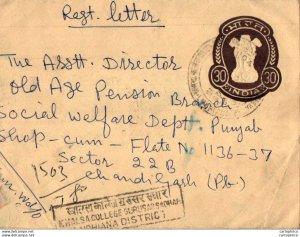 Regt. letter
The Asstt. Director
Old Age Pension Branch
Social Welfare Deptt Punjab
Shop-cum-Flats No 1136-37
Sector 22B
Chandigarh (Pb.)
1503
भारत
30 30
INDIA
KHALSA COLLEGE GURUSAR SADHAR
LUDHIANA DISTRICT